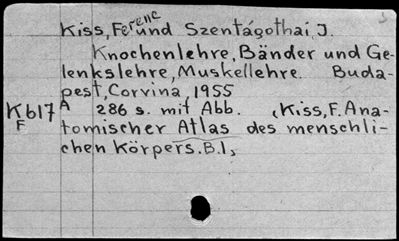 Kiss, Ferenc und Szentágothai, J.
Knochenlehre, Bänder und Ge-
lenkslehre, Muskellehre. Buda-
pest, Corvina, 1955
K617 A 286 s. mit Abb. (Kiss, F. Ana-
F tomischer Atlas des menschli-
chen Körpers. B. 1,